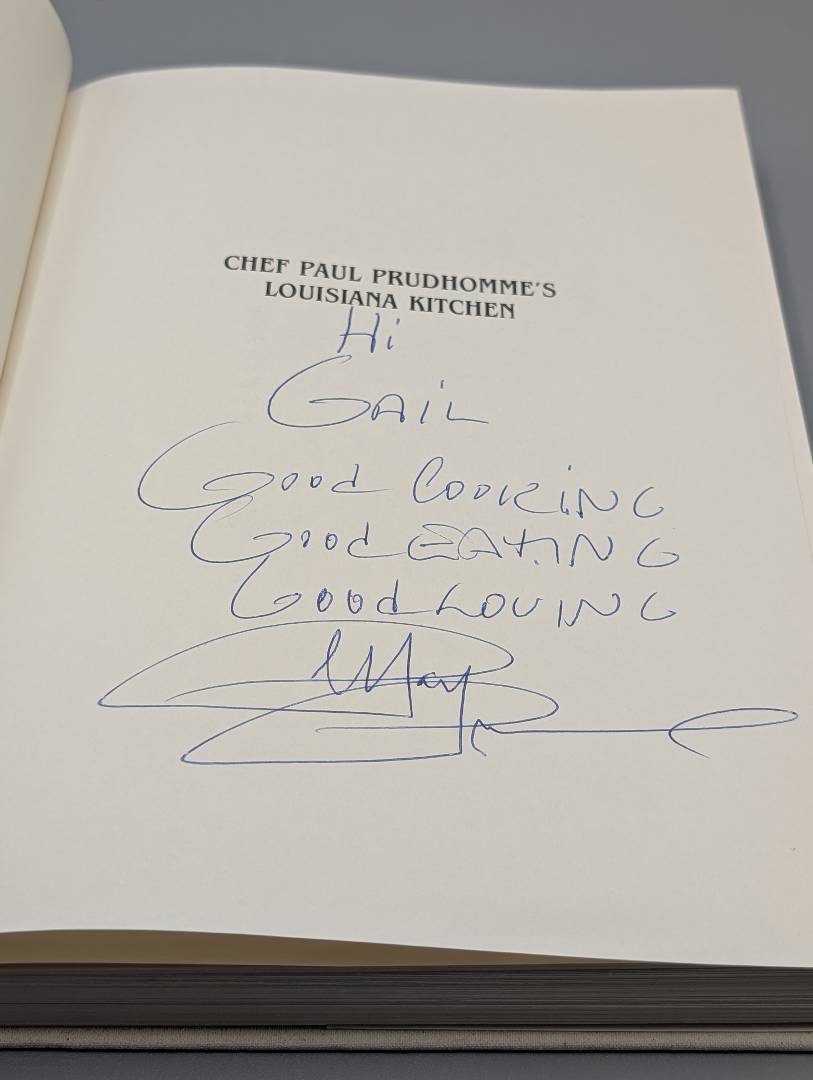 CHEF PAUL PRUDHOMME'S
LOUISIANA KITCHEN
Hi
GAiL
Good COOKiNG
Good EATiNG
Good LOVING